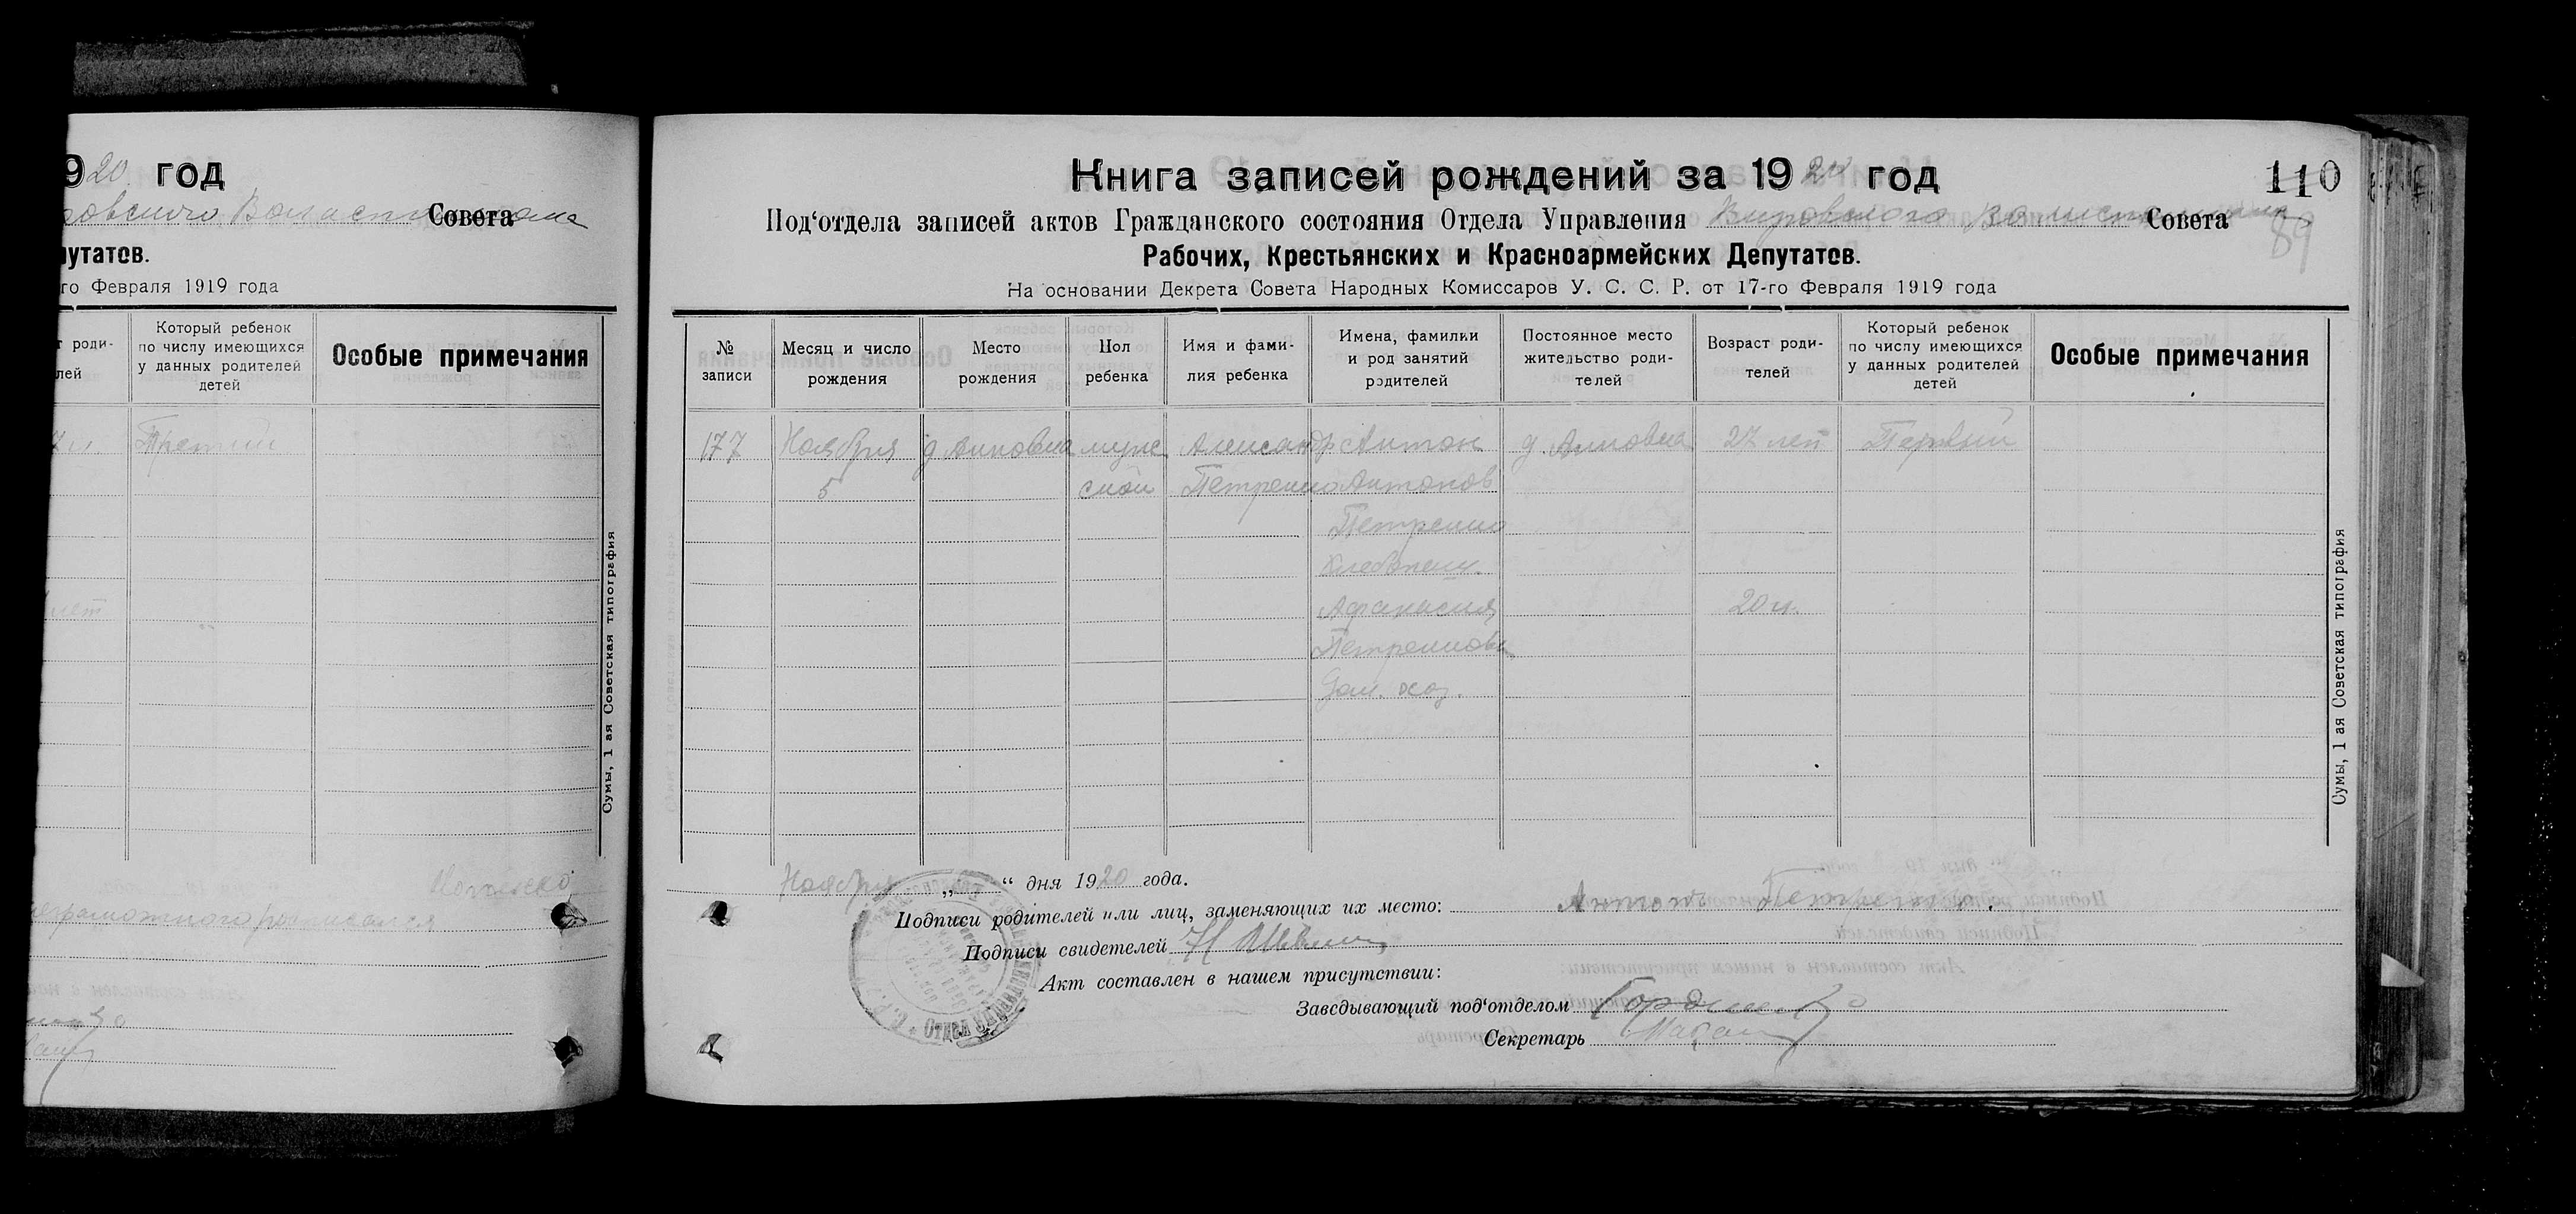 20 год
Совета
путатов.
го Февраля 1919 года
т роди-
лей
Который ребенок
по числу имеющихся
у данных родителей
детей
Особые примечания
Третий
лет
Сумы, 1 ая Советская типография
неграмотного расписался
110
89
Книга записей рождений за 1920 год
Под‘отдела записей актов Гражданского состояния Отдела Управления Вировского Совета
Рабочих, Крестьянских и Красноармейских Депутатов.
На основании Декрета Совета Народных Комиссаров У. С. С. Р. от 17-го Февраля 1919 года
№
записи
Месяц и число
рождения
Место
рождения
Пол
ребенка
Имя и фами-
лия ребенка
Имена, фамилии
и род занятий
родителей
Постоянное место
жительство роди-
телей
Возраст роди-
телей
Который ребенок
по числу имеющихся
у данных родителей
детей
Особые примечания
177 Ноября д. Анновка муже Александр Антон д. Анновка 27 лет Первый
5 ской Петренко Антонов
Петренко
Хлебопаш.
Афанасия 20 л.
Петренкова
Дом. хоз.
Сумы, 1 ая Советская типография
Ноября „ “ дня 1920 года.
Подписи родителей или лиц, заменяющих их место: Антонъ Петренко.
Подписи свидетелей
Акт составлен в нашем присутствии:
Заведывающий под‘отделом
Секретарь
Отдел Управления